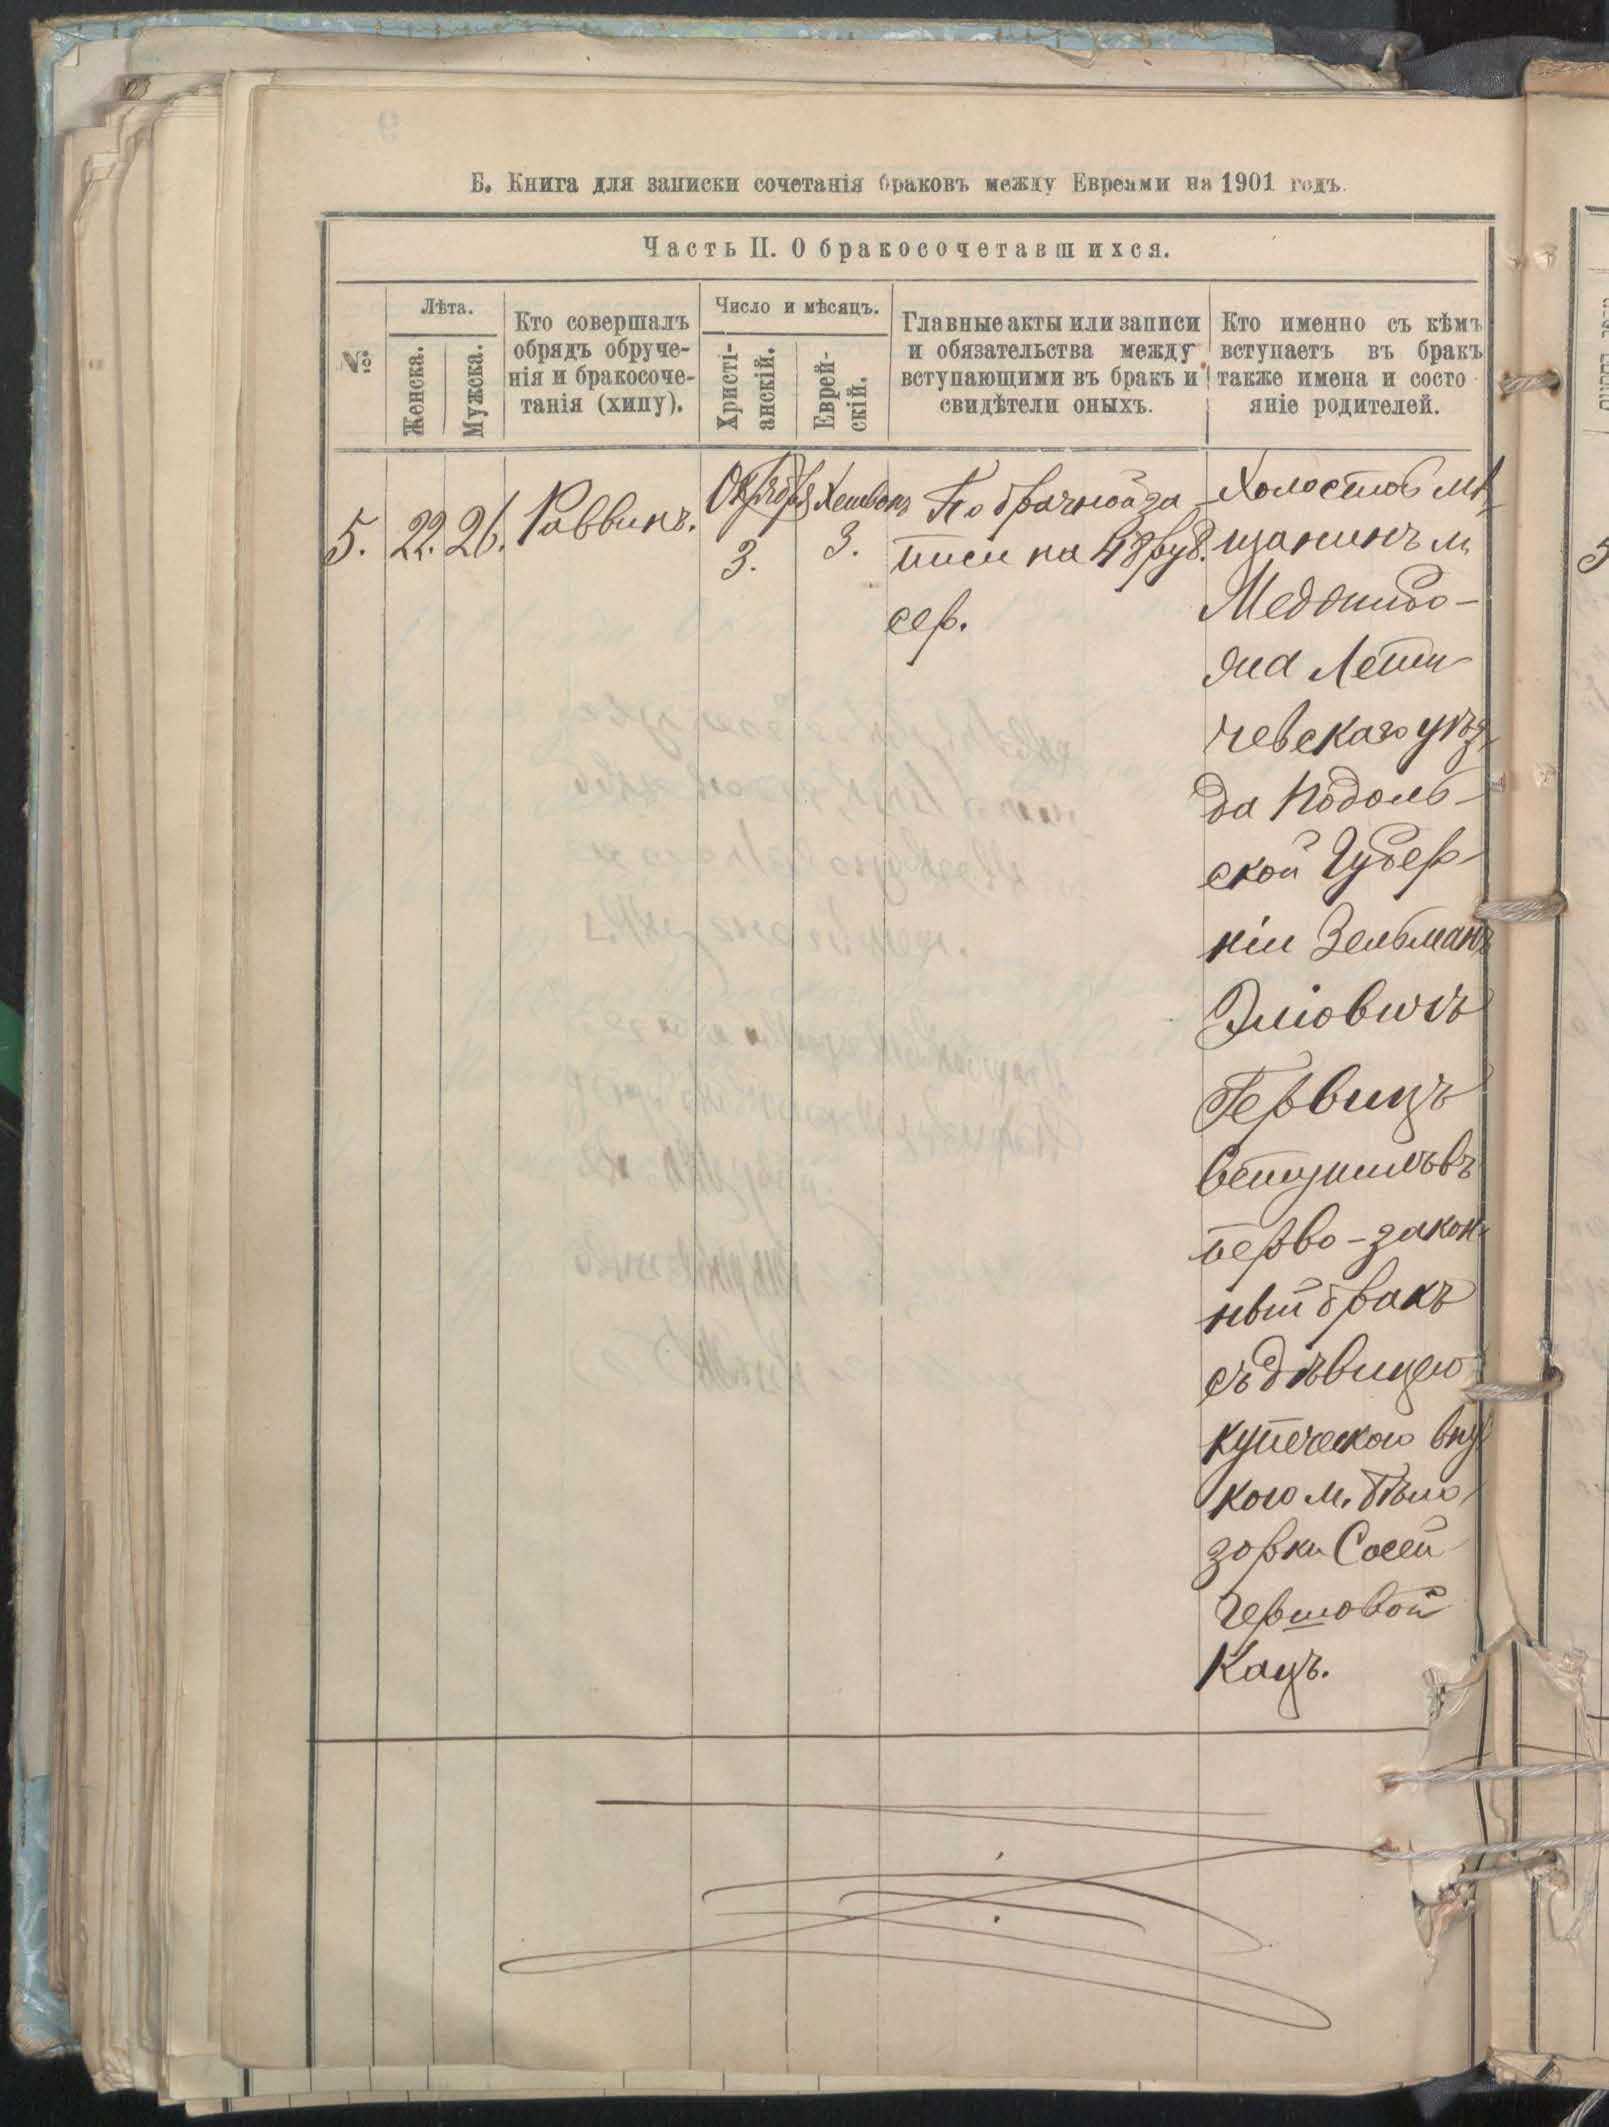 Б. Книга для записки сочетанія браковъ между Евреями на 1901 годъ.
Часть II. О бракосочетавшихся.
№
Лѣта.
Женска.
Мужска.
Кто совершалъ
обрядъ обруче-
нія и бракосоче-
танія (хипу).
Число и мѣсяцъ.
Христі-
анскій.
Еврей-
скій.
Главные акты или записи
и обязательства между
вступающими въ бракъ и
свидѣтели оныхъ.
Кто именно съ кѣмъ
вступаетъ въ бракъ
также имена и состо
яніе родителей.
5.
22.
26.
Раввинъ.
Октября
3.
Хешвонъ
3.
По брачной за
писи на 48 руб.
сер.
Холостой мѣ
щанинъ м.
Меджибо-
жа Лети
чевскаго уѣз
да Подоль-
ской Губер
ніи Зельманъ
Эліовичъ
Гервицъ
вступилъ въ
перво-закон
ный бракъ
съ дѣвицею
купеческою вну
кою м. Бѣло
зорки Сосей
Гершовой
Кацъ.